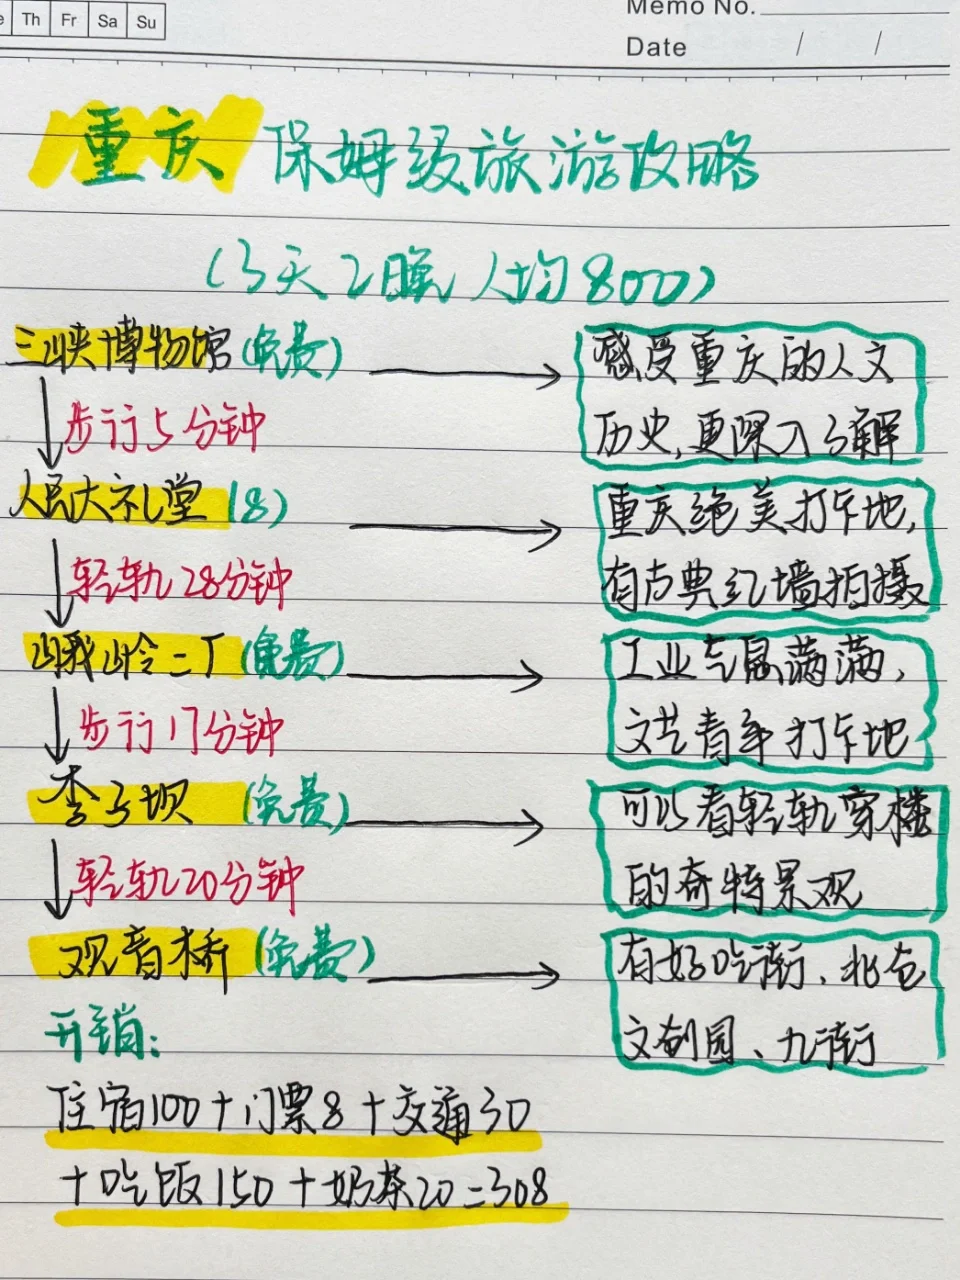 Th Fr Sa Su
Memo No.
Date / /
重庆 保姆级旅游攻略
(3天2晚 人均800)
三峡博物馆(免费)
感受重庆的人文
历史,更深入了解
步行5分钟
人民大礼堂(8)
重庆绝美打卡地,
有古典红墙拍摄
轻轨28分钟
鹅岭二厂(免费)
工业气息满满,
文艺青年打卡地
步行17分钟
李子坝(免费)
可以看轻轨穿楼
的奇特景观
轻轨20分钟
观音桥(免费)
有好吃街、北仓
文创园、九街
开销:
住宿100+门票8+交通30
+吃饭150+奶茶20=308